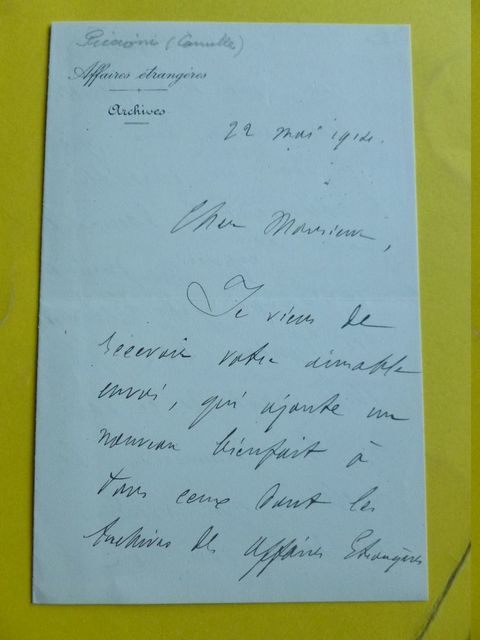 Piccioni (Camille)
Affaires étrangères
Archives
22 mai 1912.
Cher Monsieur,
Je viens de
recevoir votre aimable
envoi, qui ajoute un
nouveau bienfait à
tous ceux dont les
Archives des Affaires Etrangères